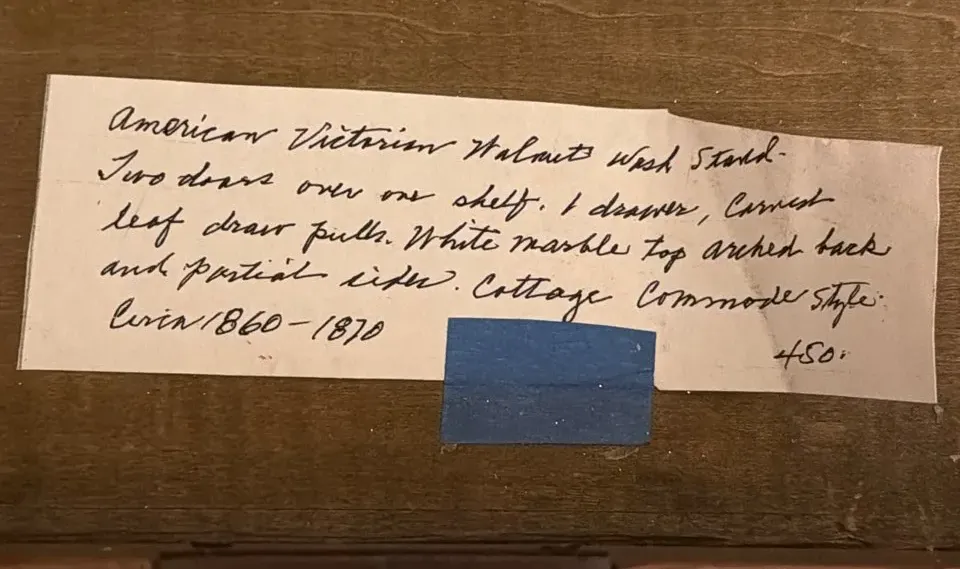 American Victorian Walnut Wash Stand-
Two doors over one shelf. 1 drawer, Carved
leaf draw pulls. White marble top arched back
and partial sides. Cottage Commode Style.
Circa 1860-1870
450.